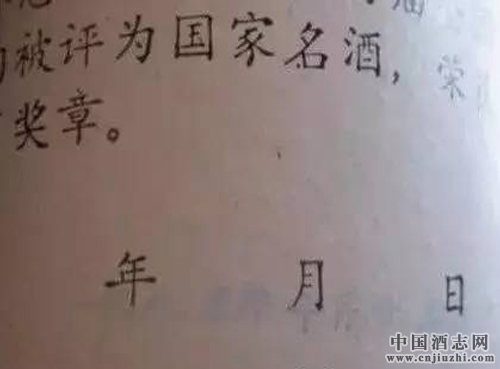 被评为国家名酒，荣
奖章。
年 月 日
中国酒志网
www.cnjiuzhi.com